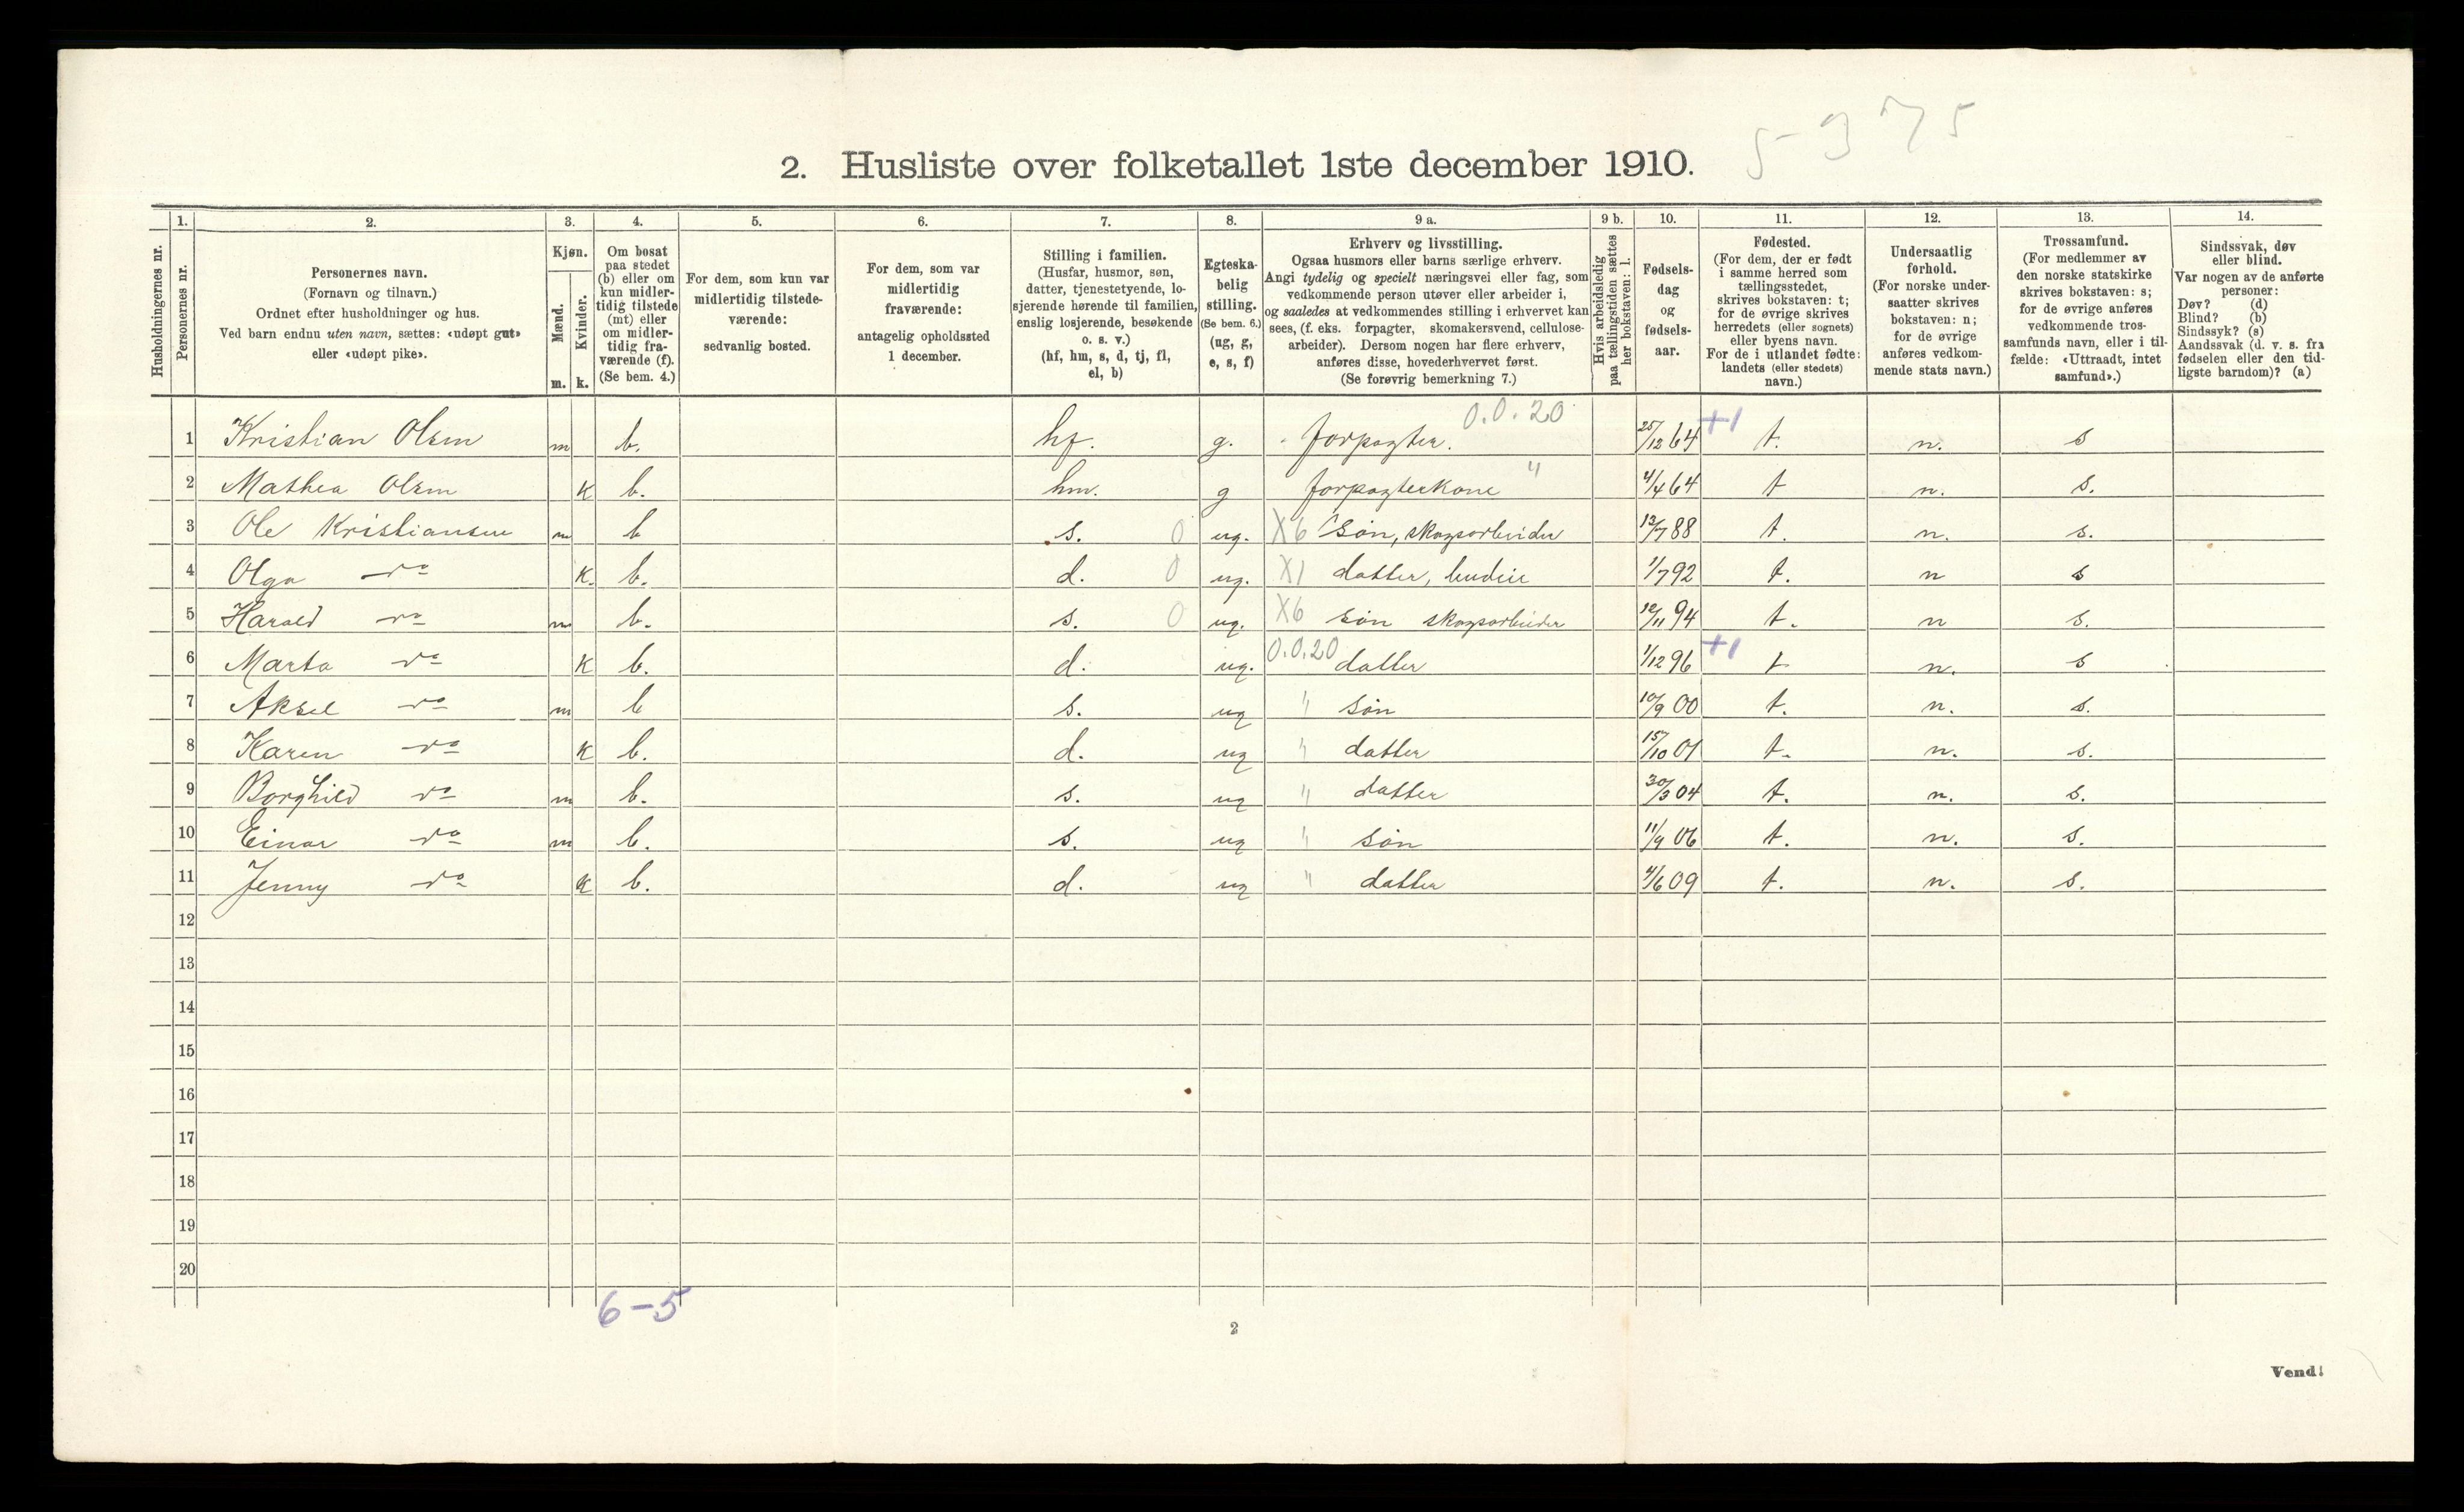 5-375
2. Husliste over folketallet 1ste december 1910.
Husholdningernes nr.
1.
Personernes nr.
2.
Personernes navn.
(Fornavn og tilnavn.)
Ordnet efter husholdninger og hus.
Ved barn endnu uten navn, sættes: «udøpt gut»
eller «udøpt pike».
3.
Kjøn.
Mænd.
Kvinder.
m. k.
4.
Om bosat
paa stedet
(b) eller om
kun midler-
tidig tilstede
(mt) eller
om midler-
tidig fra-
værende (f).
(Se bem. 4.)
5.
For dem, som kun var
midlertidig tilstede-
værende:
sedvanlig bosted.
6.
For dem, som var
midlertidig
fraværende:
antagelig opholdssted
1 december.
7.
Stilling i familien.
(Husfar, husmor, søn,
datter, tjenestetyende, lo-
sjerende hørende til familien,
enslig losjerende, besøkende
o. s. v.)
(hf, hm, s, d, tj, fl,
el, b)
8.
Egteska-
belig
stilling.
(Se bem. 6.)
(ug, g,
e, s, f)
9 a.
Erhverv og livsstilling.
Ogsaa husmors eller barns særlige erhverv.
Angi tydelig og specielt næringsvei eller fag, som
vedkommende person utøver eller arbeider i,
og saaledes at vedkommendes stilling i erhvervet kan
sees, (f. eks. forpagter, skomakersvend, cellulose-
arbeider). Dersom nogen har flere erhverv,
anføres disse, hovederhvervet først.
(Se forøvrig bemerkning 7.)
9 b.
Hvis arbeidsledig
paa tællingstiden sættes
her bokstaven: l.
10.
Fødsels-
dag
og
fødsels-
aar.
11.
Fødested.
(For dem, der er født
i samme herred som
tællingsstedet,
skrives bokstaven: t;
for de øvrige skrives
herredets (eller sognets)
eller byens navn.
For de i utlandet fødte:
landets (eller stedets)
navn.)
12.
Undersaatlig
forhold.
(For norske under-
saatter skrives
bokstaven: n;
for de øvrige
anføres vedkom-
mende stats navn.)
13.
Trossamfund.
(For medlemmer av
den norske statskirke
skrives bokstaven: s;
for de øvrige anføres
vedkommende tros-
samfunds navn, eller i til-
fælde: «Uttraadt, intet
samfund».)
14.
Sindssvak, døv
eller blind.
Var nogen av de anførte
personer:
Døv? (d)
Blind? (b)
Sindssyk? (s)
Aandssvak (d. v. s. fra
fødselen eller den tid-
ligste barndom)? (a)
1 Kristian Olsen m b. hf. g. forpagter. 0.0.20 25/12 64 +1 t. n. s
2 Mathea Olsen k b. hm. g forpagterkone " 4/4 64 t n. s.
3 Ole Kristiansen m b s. 0 ug. X6 søn, skogsarbeider 13/7 88 t. n. s.
4 Olga do k. b. d. 0 ug. X1 datter, budeie 1/7 92 t. n s
5 Harald do m b. s. 0 ug. X6 søn skogsarbeider 12/11 94 t. n s.
6 Marta do k b. d. ug. 0.0.20 datter 1/12 96 +1 t n. s
7 Aksel do m b s. ug " søn 10/9 00 t. n. s.
8 Karen do k b. d. ug " datter 15/10 01 t. n. s.
9 Borghild do m b. s. ug " datter 30/3 04 t. n. s.
10 Einar do m b. s. ug " søn 11/9 06 t. n. s.
11 Jenny do k b. d. ug " datter 4/6 09 t. n. s.
12
13
14
15
16
17
18
19
20
6-5
2
Vend!